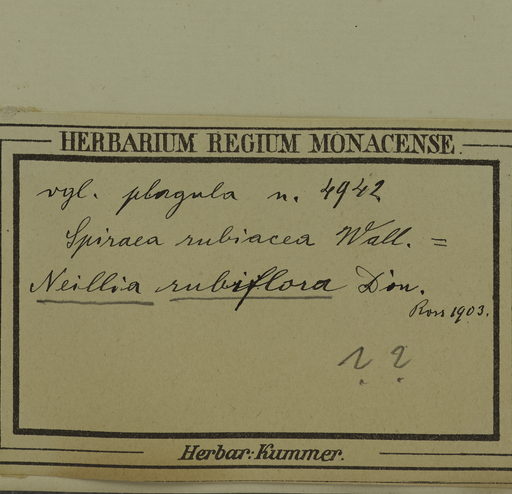 HERBARIUM REGIUM MONACENSE.
vgl. plagula n. 4942
Spiraea rubiacea Wall. =
Neillia rubiflora Don.
Ross 1903.
? ?
Herbar: Kummer.